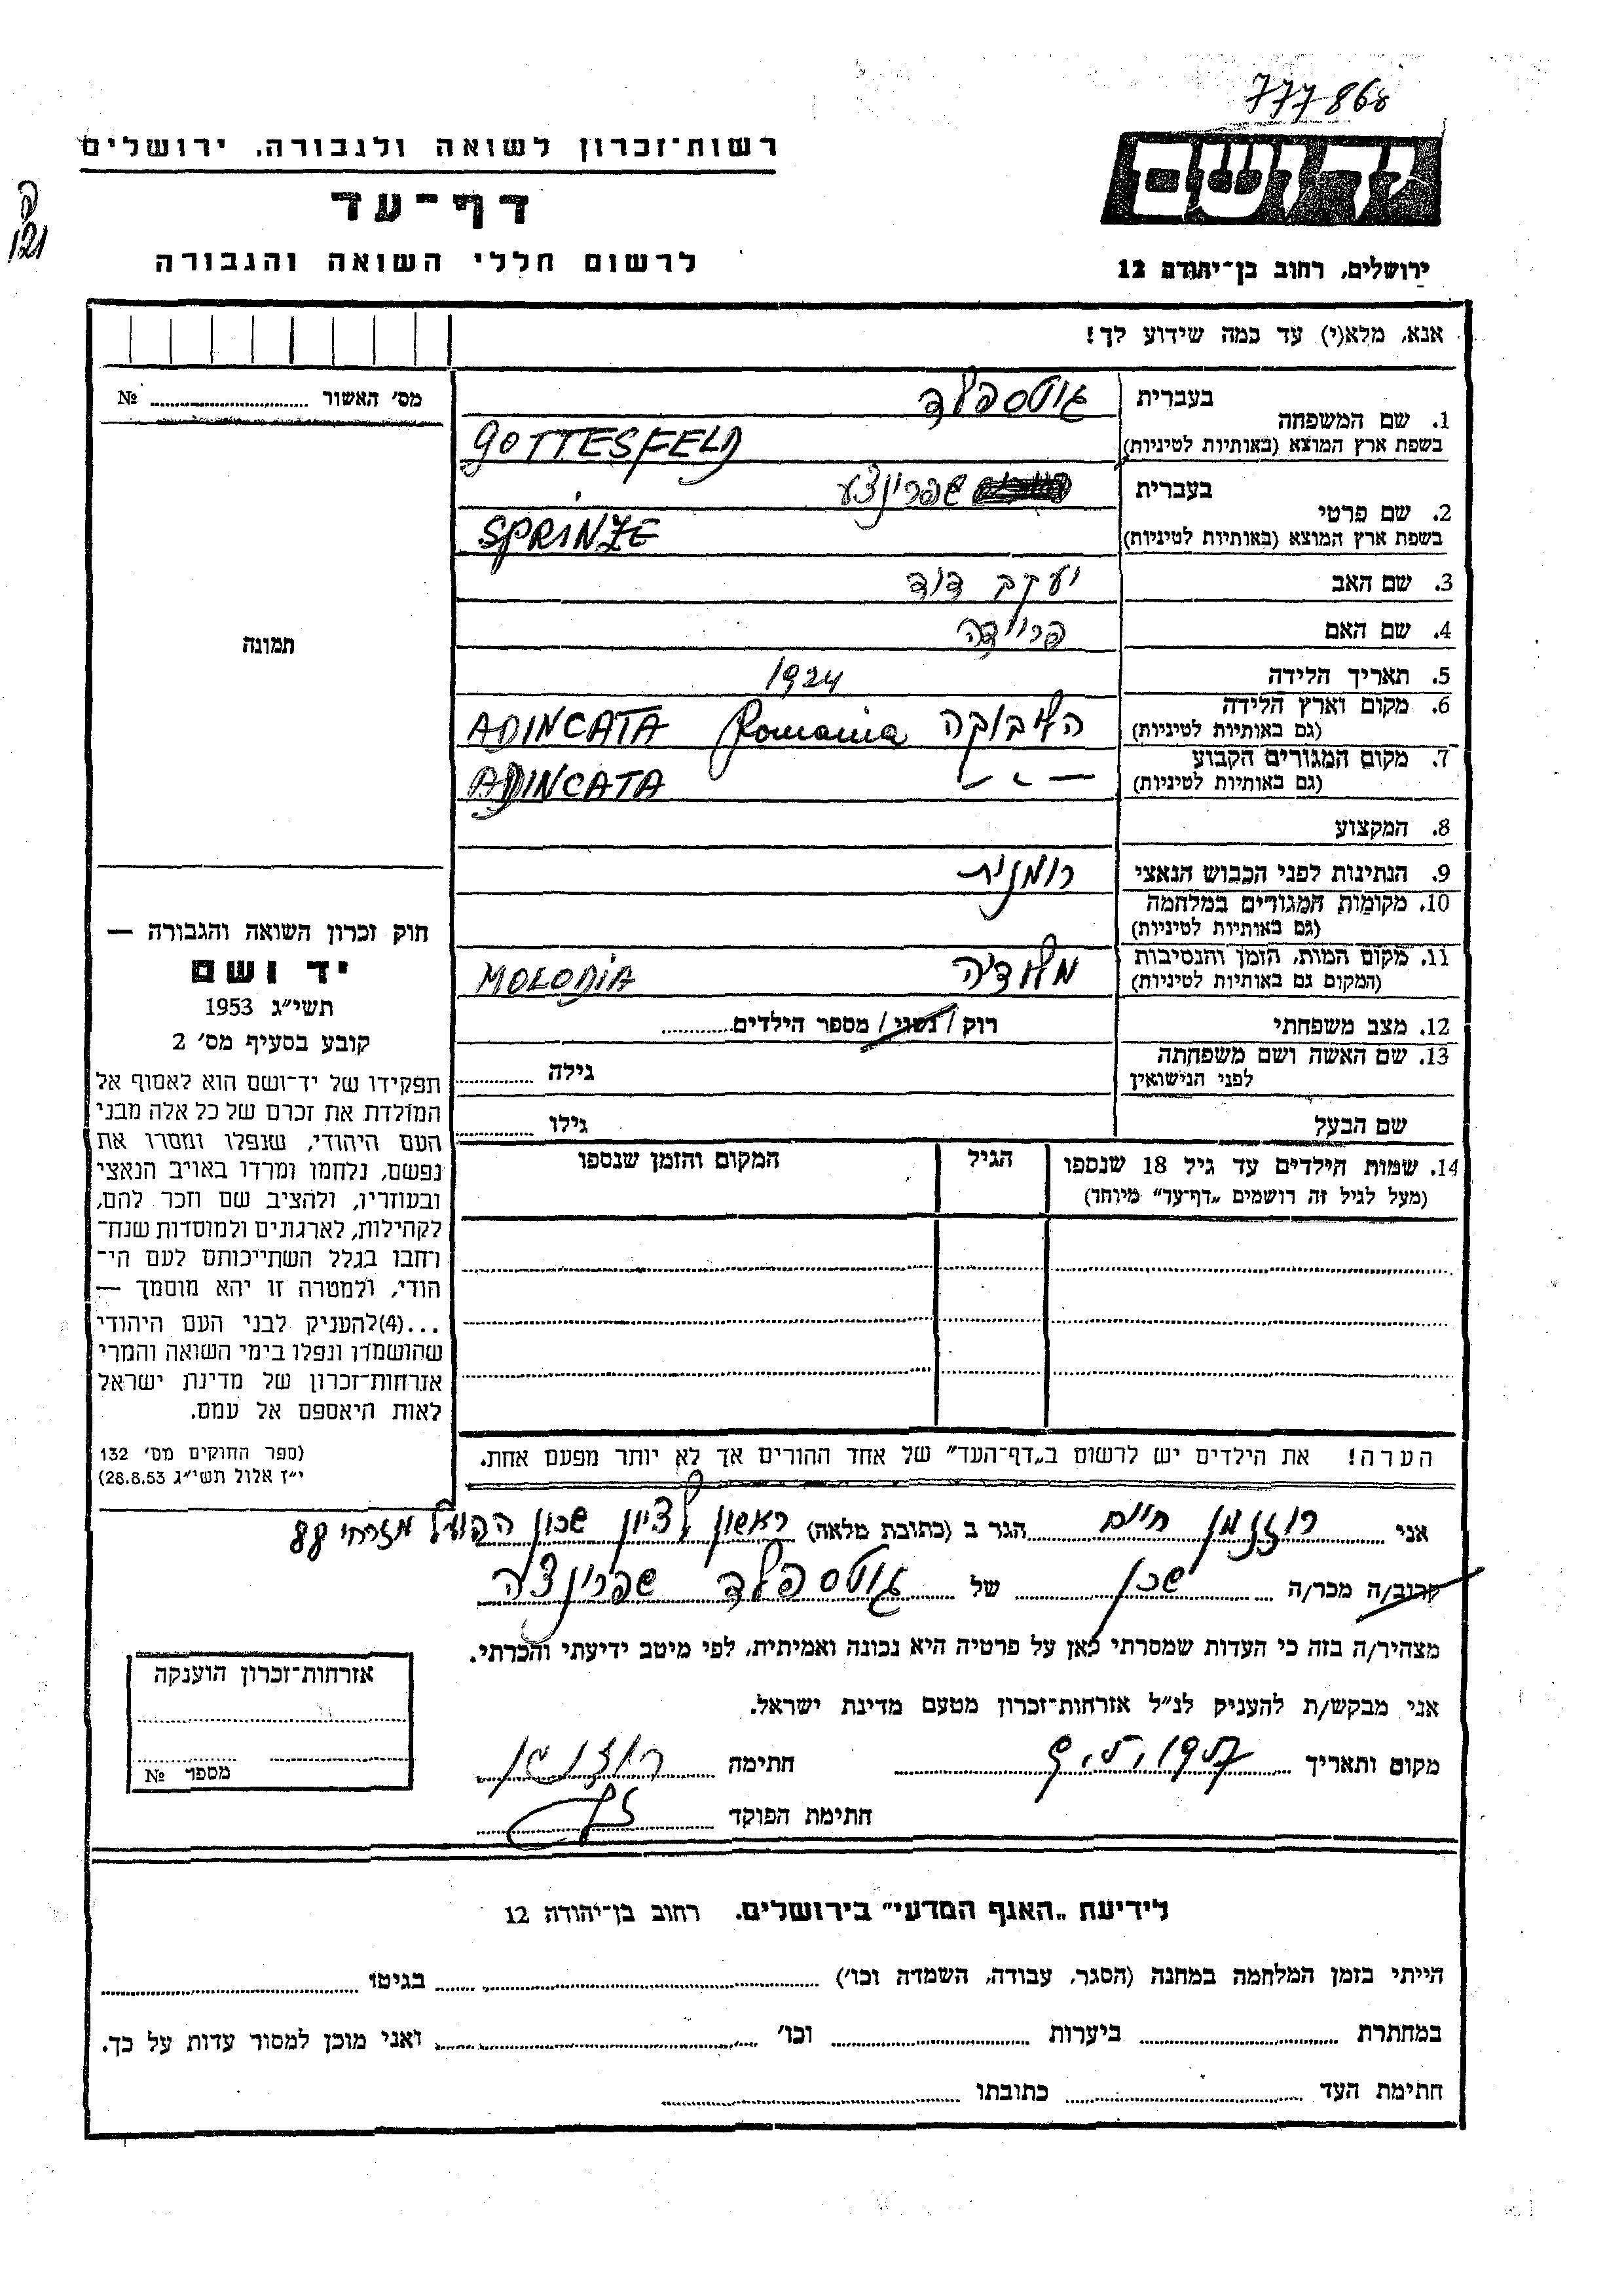 777868
רשות־זכרון לשואה ולגבורה, ירושלים
דף־עד
לרשום חללי השואה והגבורה
ידושם
ירושלים, רחוב בן־יהודה 12
אנא, מלא(י) עד כמה שידוע לך!
מס׳ האשור № 
1. שם המשפחה
בעברית גוטספלד
בשפת ארץ המוצא (באותיות לטיניות) GOTTESFELD
2. שם פרטי
בעברית שפרינצע
בשפת ארץ המוצא (באותיות לטיניות) SPRINZE
3. שם האב יעקב דוד
4. שם האם פריידה
5. תאריך הלידה 1924
6. מקום וארץ הלידה
(גם באותיות לטיניות) הליבוקה Romania ADINCATA
7. מקום המגורים הקבוע
(גם באותיות לטיניות) — " — ADINCATA
8. המקצוע
9. הנתינות לפני הכבוש הנאצי רומנית
10. מקומות המגורים במלחמה
(גם באותיות לטיניות)
11. מקום המות, הזמן והנסיבות
(המקום גם באותיות לטיניות) מולודיה MOLODIA
12. מצב משפחתי רוק / נשוי / מספר הילדים
13. שם האשה ושם משפחתה
לפני הנישואין גילה
שם הבעל גילו
14. שמות הילדים עד גיל 18 שנספו הגיל המקום והזמן שנספו
(מעל לגיל זה רושמים „דף־עד״ מיוחד)
הערה! את הילדים יש לרשום ב„דף־העד״ של אחד ההורים אך לא יותר מפעם אחת.
תמונה
חוק זכרון השואה והגבורה —
יד ושם
תשי״ג 1953
קובע בסעיף מס׳ 2
תפקידו של יד־ושם הוא לאסוף אל
המולדת את זכרם של כל אלה מבני
העם היהודי, שנפלו ומסרו את
נפשם, נלחמו ומרדו באויב הנאצי
ובעוזריו, ולהציב שם וזכר להם,
לקהילות, לארגונים ולמוסדות שנח־
רחבו בגלל השתייכותם לעם הי־
הודי, ולמטרה זו יהא מוסמך —
...(4)להעניק לבני העם היהודי
שהושמדו ונפלו בימי השואה והמרי
אזרחות־זכרון של מדינת ישראל
לאות היאספם אל עמם.
(ספר החוקים מס׳ 132
י״ז אלול תשי״ג 28.8.53)
אני רוזנמן חיים הגר ב (כתובת מלאה) ראשון לציון שכון הפועל מזרחי 88
קרוב/ה מכר/ה שכן של גוטספלד שפרינצה
מצהיר/ה בזה כי העדות שמסרתי כאן על פרטיה היא נכונה ואמיתית, לפי מיטב ידיעתי והכרתי.
אני מבקש/ת להעניק לנ״ל אזרחות־זכרון מטעם מדינת ישראל.
מקום ותאריך חתימה רוזנמן
חתימת הפוקד
אזרחות־זכרון הוענקה
מספר №
לידיעת „האגף המדעי״ בירושלים. רחוב בן־יהודה 12
הייתי בזמן המלחמה במחנה (הסגר, עבודה, השמדה וכו׳) בגיטו
במחתרת ביערות וכו׳ ואני מוכן למסור עדות על כך.
חתימת העד כתובתו